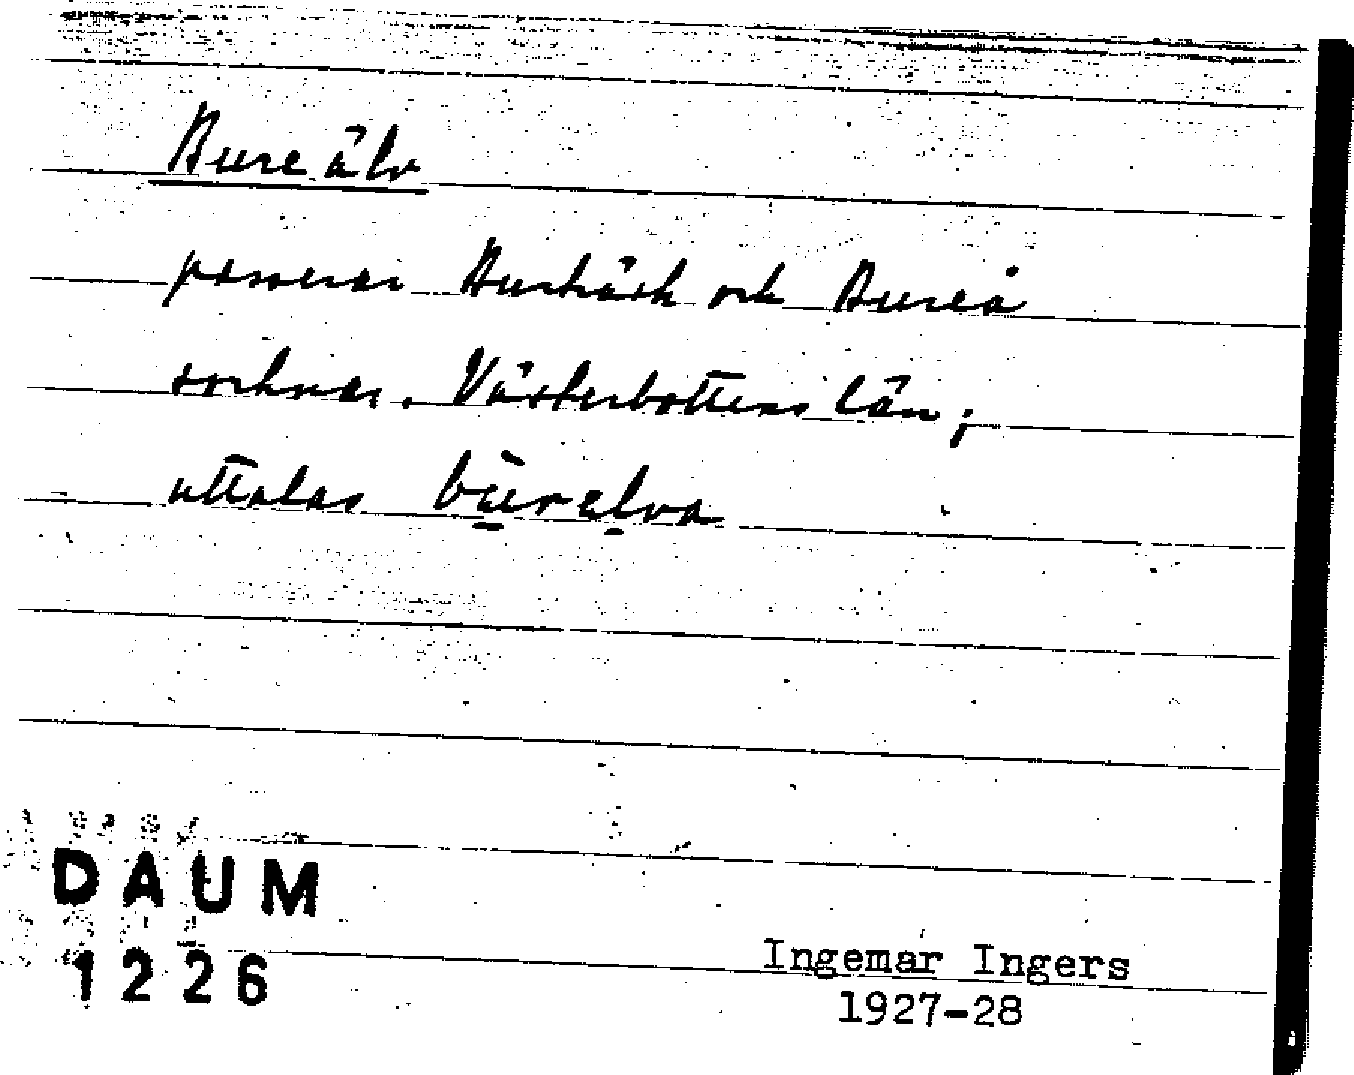 Bure älv
passerar Burträsk och Bureå
socknar, Västerbottens län;
uttalas bürelva
DAUM
1226
Ingemar Ingers
1927-28